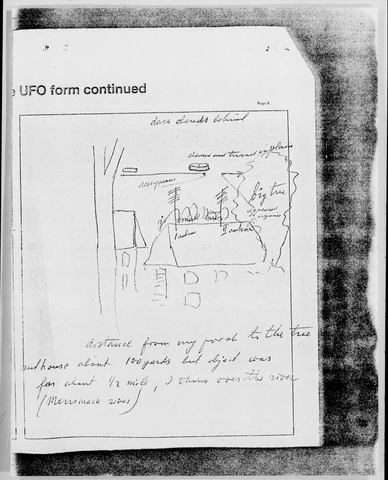 e UFO form continued
Page 8
dark clouds behind
reappears
big tree
small
distance from my porch to the tree
and house about 100 yards but object was
far about 1/2 mile, I think over the river
(Merrimack river)